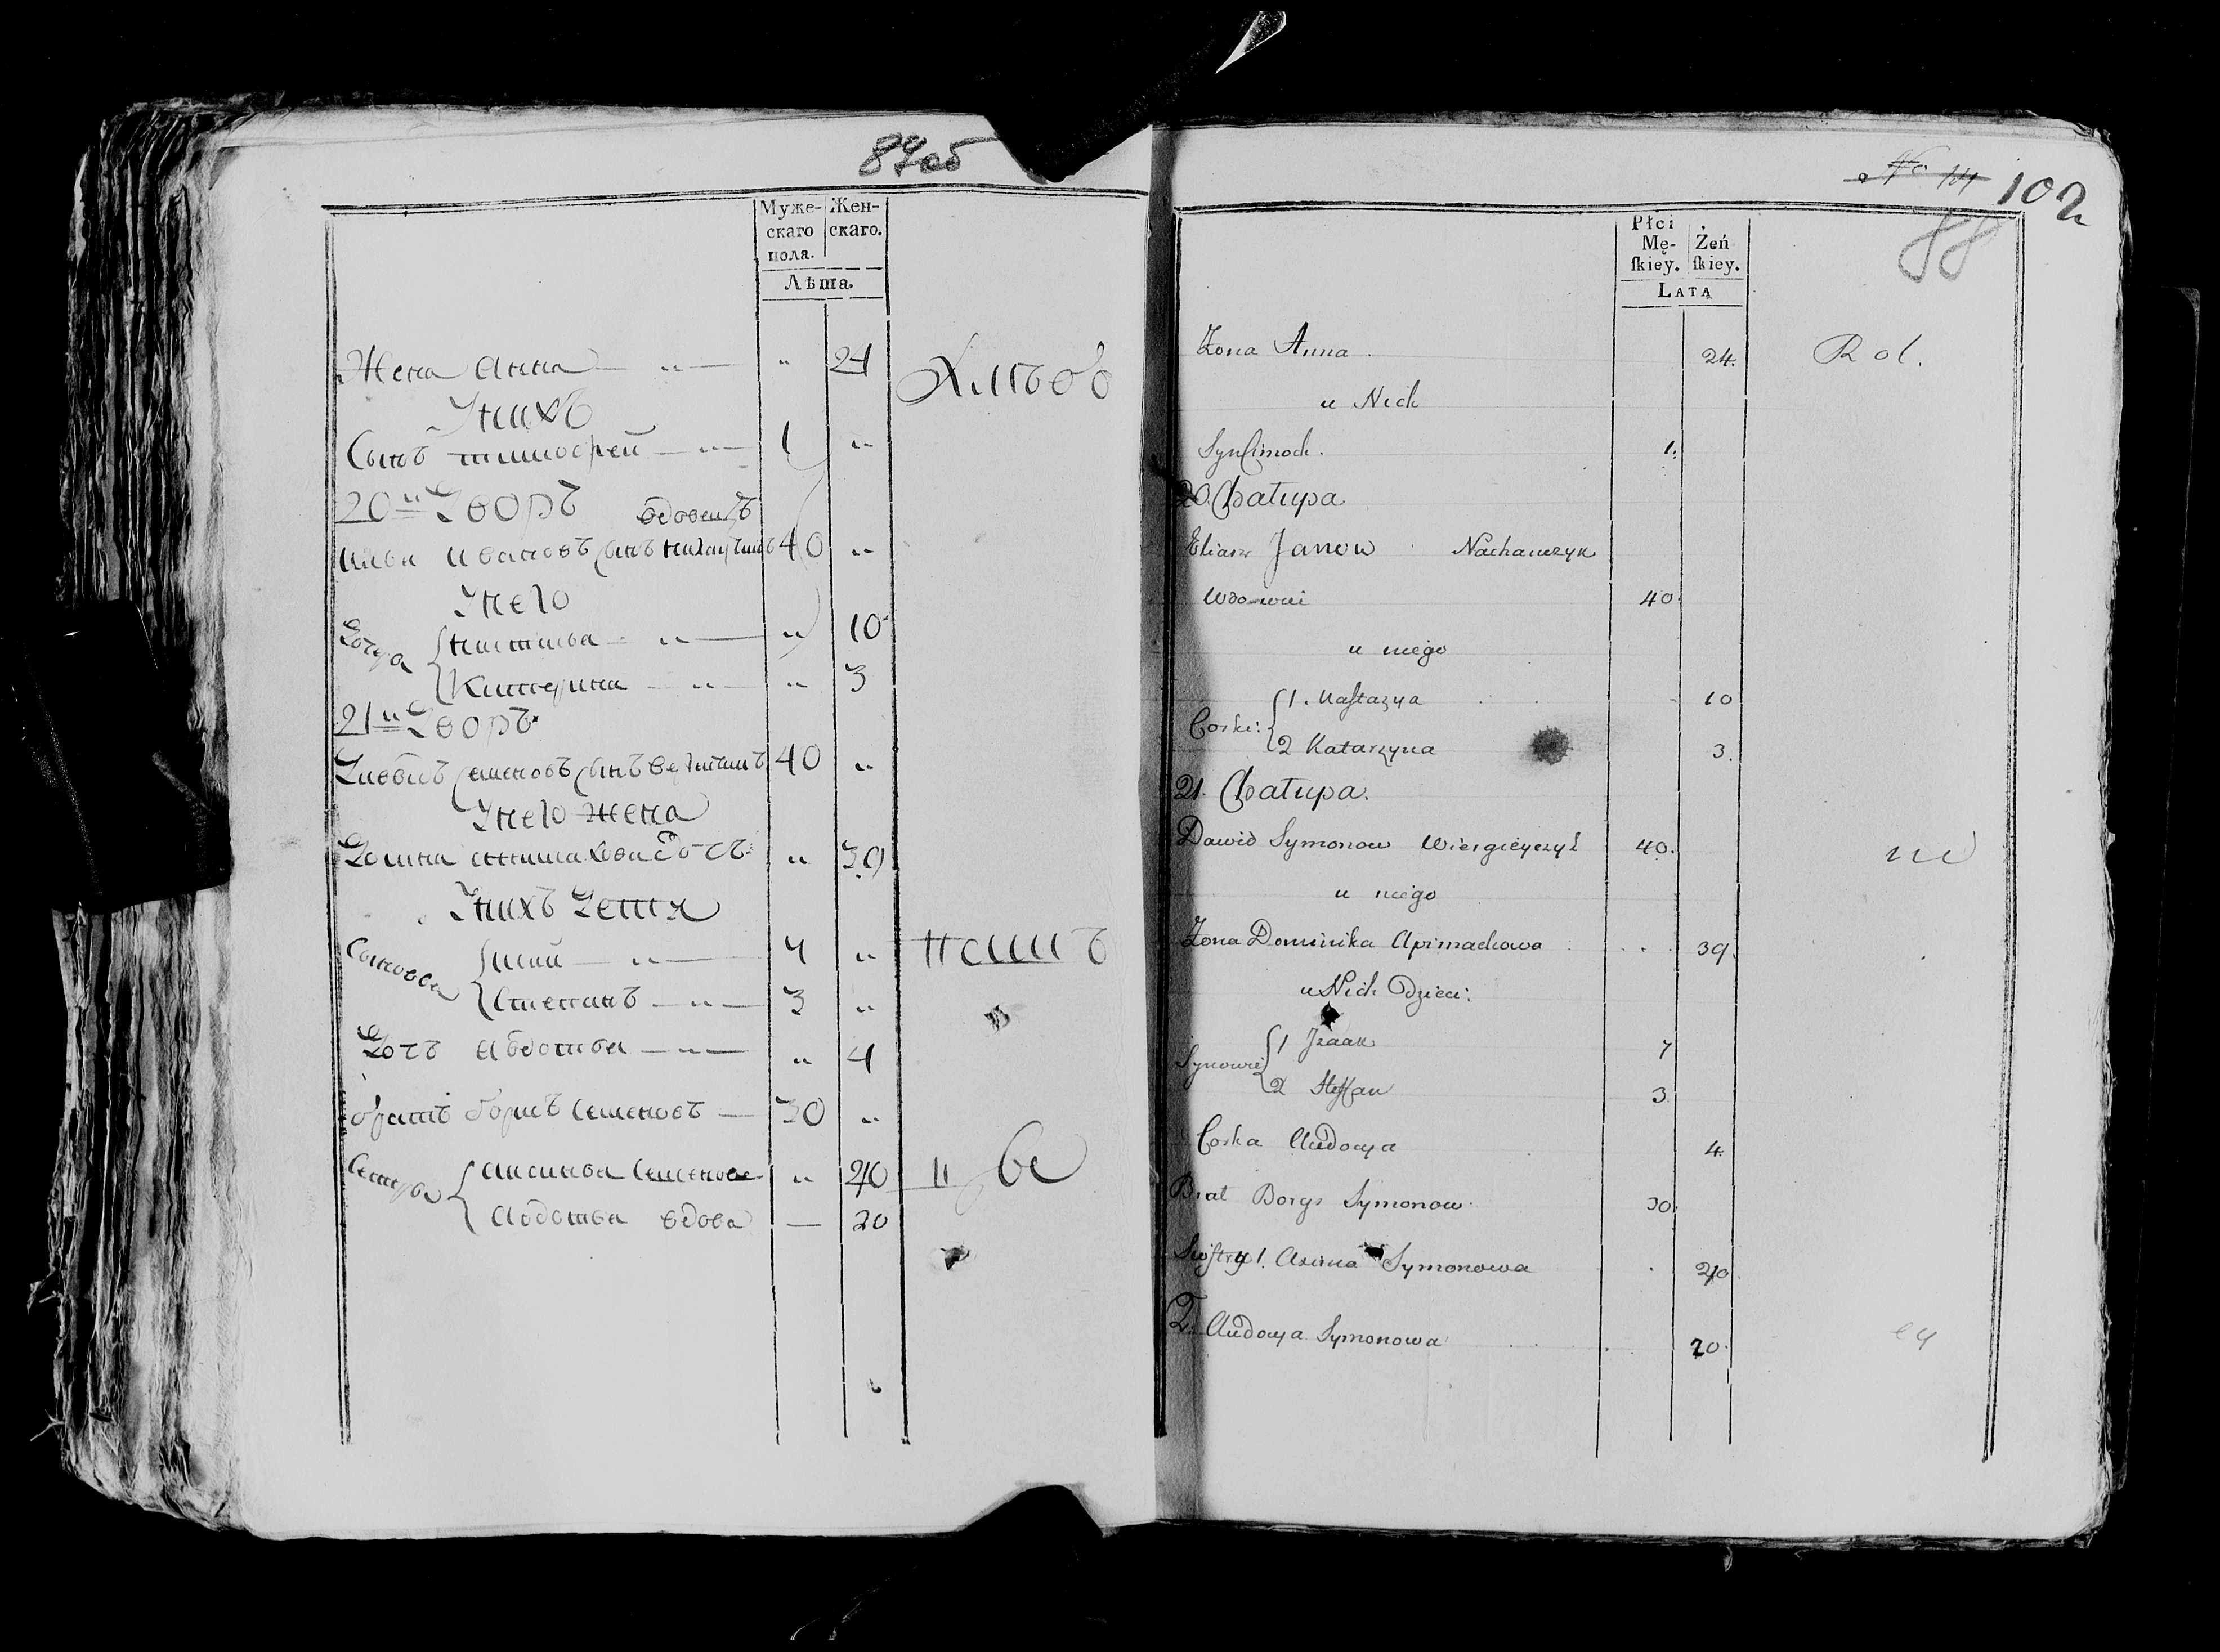 87об
Муже-
скаго
пола.
Жен-
скаго.
Лѣта.
Жена Анна — „ — „ 24
Унихъ
Сынъ тимофей — „ — 1 „
20й Дворъ вдовецъ
Илья Ивановъ сынъ 40 „
Унего
Дочери Настасья — „ — „ 10
Катерина — „ — „ 3
21й Дворъ
Давыдъ Семеновъ сынъ 40 „
Унего жена
Домна дочь „ 39
Унихъ Дети
Сыновья Исай — „ — 7 „
Степанъ — „ — 3 „
Дочь Авдотья — „ — „ 4
братъ борисъ Семеновъ — 30 „
Сестры Аксинья Семенова „ 20
Авдотья вдова — 20
Хлѣбо
пашъ
цы
No 14
102
88
Płci
Mę-
ſkiey.
Żeń
ſkiey.
LATA
Żona Anna 24. Rol.
u Nich
Syn Timoch. 1.
20. Chałupa
Eliasz Janow Nachauczyk
Wdowiec 40.
u niego
Corki: 1. Nastazya 10
2 Katarzyna 3.
21. Chałupa.
Dawid Symonow 40. ni
u niego
Żona Dominika Apimachowa 39.
u Nich Dzieci:
Synowie 1 Jzaak 7
2 Steffan 3
Corka Audocya 4.
Brat Borys Symonow 30.
Siostry 1. Axinia Symonowa 20
2. Audocya Symonowa 20.
cy